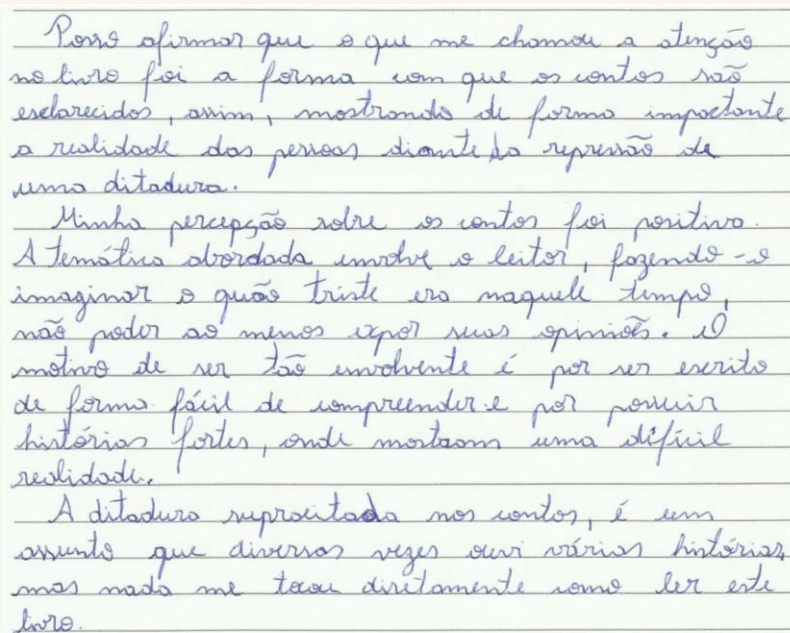 Posso afirmar que o que me chamou a atenção
no livro foi a forma com que os contos são
esclarecidos, assim, mostrando de forma impactante
a realidade das pessoas diante da repressão de
uma ditadura.
Minha percepção sobre os contos foi positiva.
A temática abordada envolve o leitor, fazendo-o
imaginar o quão triste era naquele tempo,
não poder ao menos expor suas opiniões. O
motivo de ser tão envolvente é por ser escrito
de forma fácil de compreender e por possuir
histórias fortes, onde mostram uma difícil
realidade.
A ditadura supracitada nos contos, é um
assunto que diversas vezes ouvi várias histórias,
mas nada me tocou diretamente como ler este
livro.